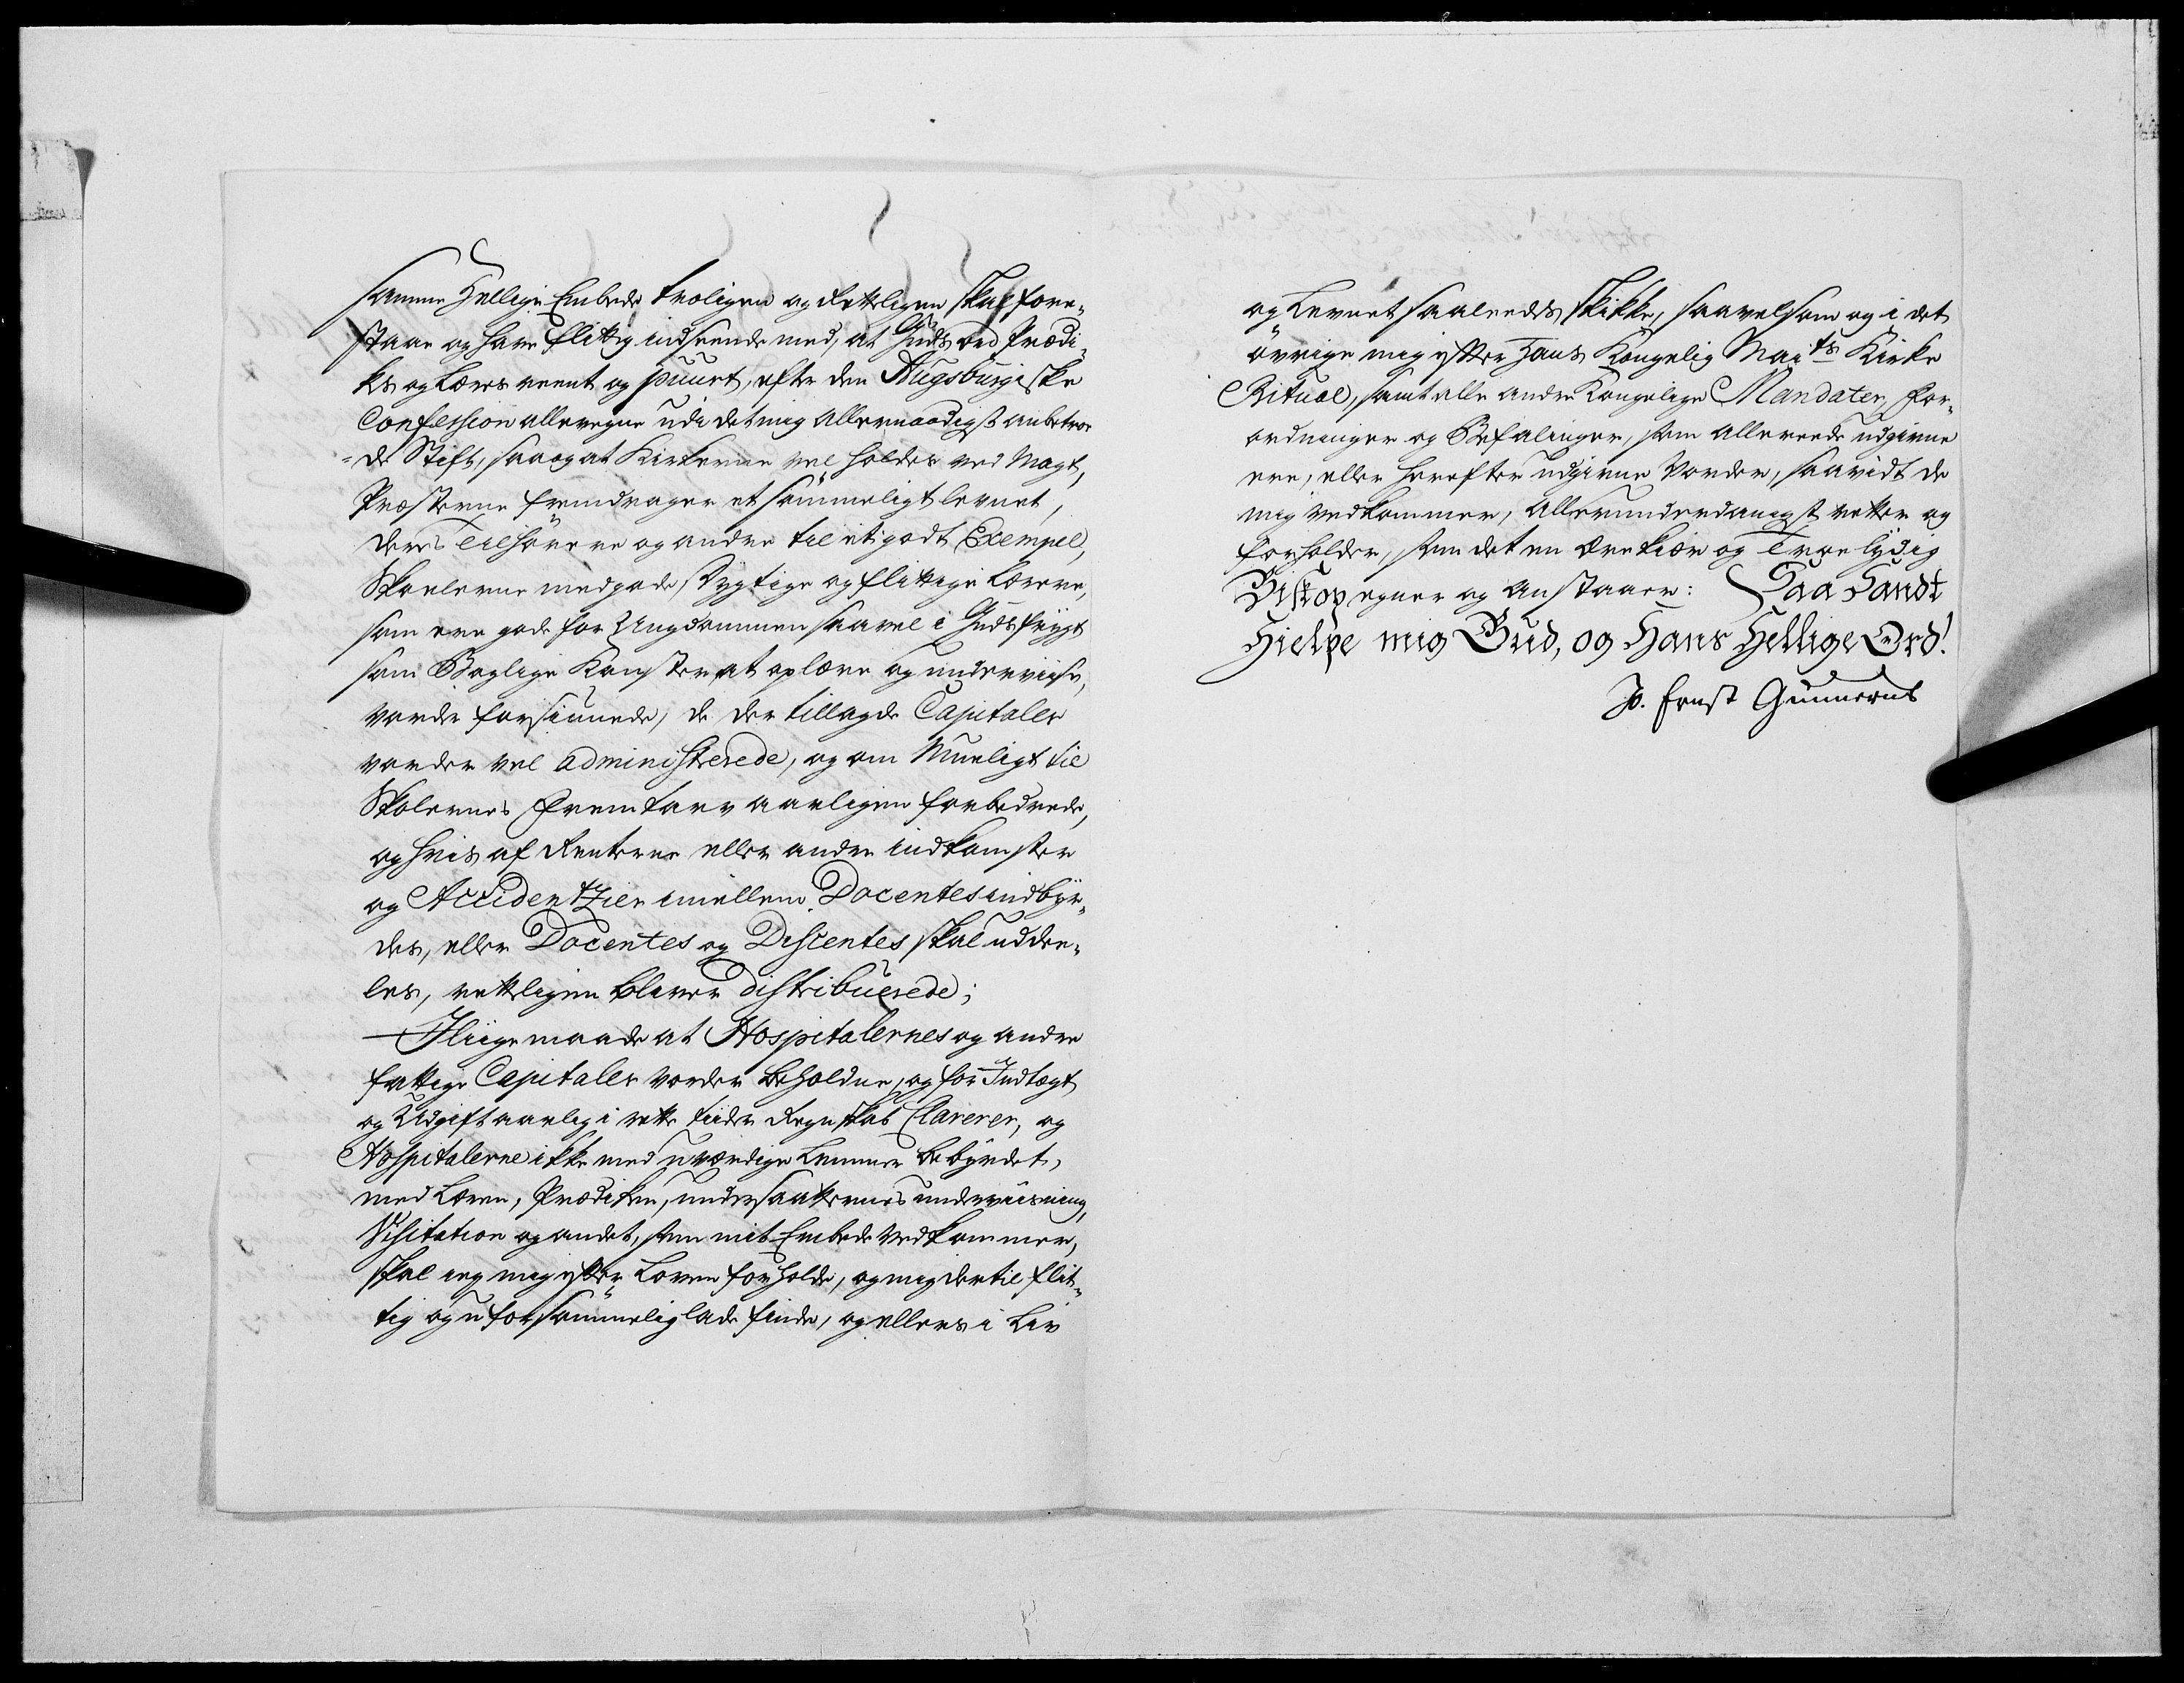 samme Hellige Embede troligen og Retteligen skal fore-
staae og have flittig indseende med, at Guds ord Prædi-
kes og læres reent og puurt, efter den Augsburgiske
Confession allevegne udi det mig Allernaadigst anbetroe-
de Stift, saa og at Kirkerne vel holdes ved Magt,
Præsterne fremdrager et sømmeligt levnet,
deres Tilhørere og andre til et godt Exempel,
Skoelerne med gode, dygtige og flittige Lærere,
som ere gode for Ungdommen saavel i Guds frygt
som Boglige Konster at oplære og underviise,
vorde forsiunede, de der tillagde Capitaler
vorder vel administrerede, og om Mueligt til
Skolernes fremtarv aarligen forbedrede,
og hvis af Renterne eller andre indkomster
og Accidentzier imellem Docentes indbyr-
des, eller Docentes og Discentes skal udde-
les, rettelig­en bliver distribuerede;
Iliige maade at Hospitalernes og andre
fattige Capitaler vorder beholdne, og for Indtægt
og Udgift aarlig i rette tiider Regnskab Clarerer, og
Hospitalerne ikke med uværdige Lemmer bebyrdet,
med Læren, Prædiken, undersaatternes underviisning,
Visitation og andet, som mit Embede vedkommer,
skal ieg mig efter Loven forholde, og mig dertil flit-
tig og uforsømmelig lade finde, og ellers i Liv
og Levnet saaleedes skikke, saavelsom og i det
øvrige mig efter Hans Kongelig Maits Kirke
Ritual, samt alle andre Kongelige Mandater, For-
ordninger og Befalinger, som allereede udgivne
ere, eller herefter udgivne vorder, saavidt de
mig vedkommer, Allerunderdanigst rette og
forholder, som det en Ærekiær og Troe lydig
Biskop egner og anstaaer: Saa Sandt
Hielpe mig Gud, og Hans Hellige Ord!
Jo. Ernst Gunnerus